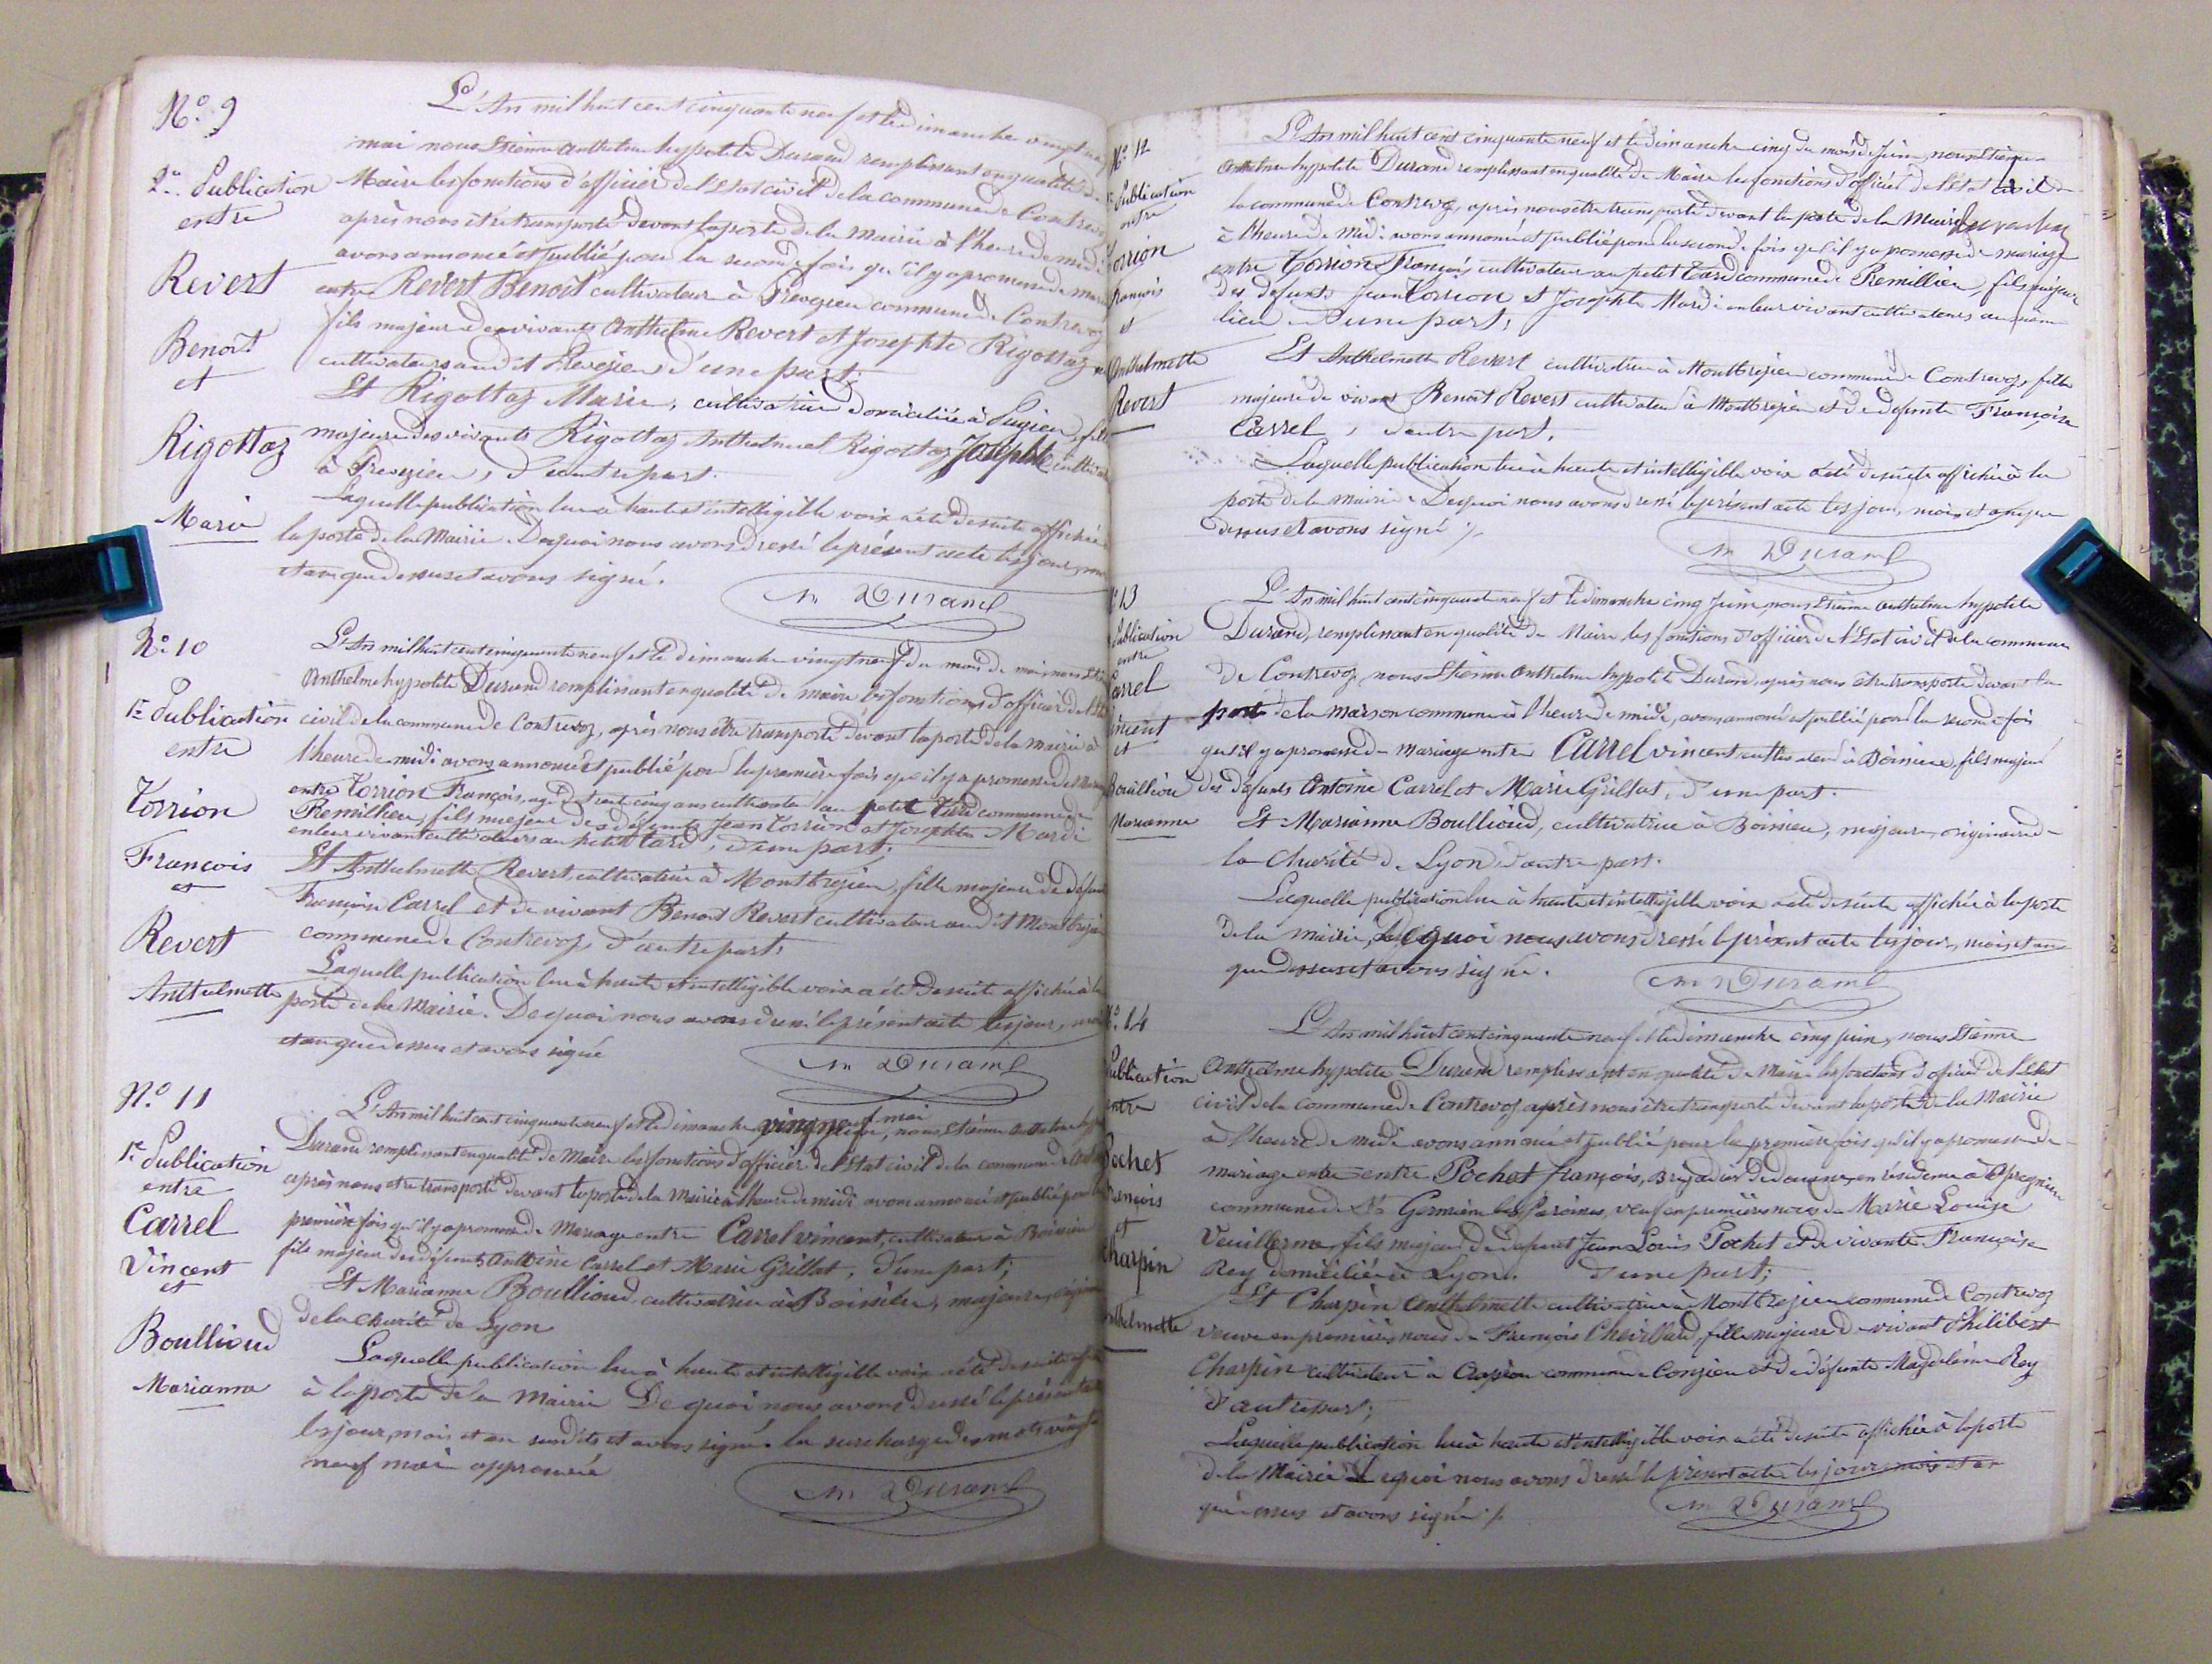 N.º 9
2.e Publication
entre
Revert
Benoit
et
Rigottaz
Marie
L'An mil huit cent cinquante neuf et le dimanche vingt neuf
mai nous Etienne Anthelme hypolite Durand remplissant en qualité de
Maire les fonctions d'officier de l'Etat civil de la commune de Contrevoz
après nous être transporté devant la porte de la Mairie à l'heure de midi
avons annoncé et publié pour la seconde fois qu'il y a promesse de
entre Revert Benoit cultivateur à Preveyzieu commune de Contrevoz
fils majeur des vivants Anthelme Revert et Josephte Rigottaz
cultivateurs au dit d'une part;
Et Rigottaz Marie, cultivatrice domiciliée à Pugieu, fille
majeure des vivants Rigottaz Anthelme et Rigottaz Josephte
à d'autre part.
Laquelle publication lue à haute et intelligible voix a été de suite affichée
la porte de la Mairie. De quoi nous avons dressé le présent acte les jour,
et an que dessus et avons signé.
M Durand
N.º 10
1.e Publication
entre
Torrion
François
et
Revert
Anthelmette
L'An mil huit cent cinquante neuf et le dimanche vingt neuf du mois de mai, nous
Anthelme hypolite Durand remplissant en qualité de maire les fonctions d'officier de
civil de la commune de Contrevoz, après nous être transporté devant la porte de la mairie à
l'heure de midi avons annoncé et publié pour la première fois que il y a promesse de
entre Torrion François, agé de trente cinq ans cultivateur au petit commune de
Premillieu, fils majeur des défunts Jean Torrion et Josephte Mardi
en leur vivant cultivateurs au petit d'une part.
Et Anthelmette Revert, cultivatrice à Montbregieu, fille majeure de
Françoise Carrel et de vivant Benoit Revert cultivateur au dit
commune de Contrevoz, d'autre part.
Laquelle publication lue à haute et intelligible voix a été de suite affichée à la
porte de la Mairie. De quoi nous avons dressé le présent acte les jour,
et an que dessus et avons signé
M Durand
N.º 11
1.e Publication
entre
Carrel
Vincent
et
Boullioud
Marianna
L'An mil huit cent cinquante neuf et le dimanche vingt neuf mai, nous Etienne Anthelme
Durand remplissant en qualité de Maire les fonctions d'officier de l'Etat civil de la commune de
après nous être transporté devant la porte de la Mairie à l'heure de midi avons annoncé et publié pour
première fois qu'il y a promesse de Mariage entre Carrel vincent, cultivateur à Boissieu
fils majeur des défunts Antoine Carrel et Marie Grillat, d'une part;
Et Marianne Boullioud cultivatrice à Boissieu, majeure,
de la Charité de Lyon
Laquelle publication lue à haute et intelligible voix a été de suite
à la porte de la Mairie De quoi nous avons dressé le présent
les jour, mois et an susdits et avons signé. la surcharge des mots vingt
neuf mai approuvée
M Durand
N.º 12
Publication
entre
orrion
rançois
et
Anthelmette
Revert
L'An mil huit cent cinquante neuf et le dimanche cinq du mois de Juin, nous Etienne
Anthelme hypolite Durand remplissant en qualité de Maire les fonctions d'officier de l'Etat civil de
la commune de Contrevoz, après nous être transporté devant la porte de la Mairie
à l'heure de Midi avons annoncé et publié pour la seconde fois qu'il y a promesse de mariage
entre Torrion François cultivateur au petit commune de Premillieu, fils majeur
des défunts Jean Torrion et Josephte Mardi en leur vivant cultivateurs au même
lieu d'une part;
Et Anthelmette Revert cultivatrice à Montbregieu commune de Contrevoz, fille
majeure de vivant Benoit Revert cultivateur à Montbregieu et de defunte Françoise
Carrel, d'autre part.
Laquelle publication lue à haute et intelligible voix a été de suite affichée à la
porte de la mairie. De quoi nous avons dressé le présent acte les jour, mois et an que
dessus et avons signé ./.
M Durand
13
Publication
entre
arrel
incent
et
Boullioud
Marianne
L'An mil huit cent cinquante neuf et le dimanche cinq Juin, nous Etienne Anthelme hypolite
Durand, remplissant en qualité de Maire, les fonctions d'officier de l'Etat civil de la commune
de Contrevoz, nous Etienne Anthelme hypolite Durand, après nous être transporté devant la
porte de la maison commune à l'heure de midi, avons annoncé et publié pour la seconde fois
qu'il y a promesse de Mariage entre Carrel vincent cultivateur à Boissieu, fils majeur
des défunts Antoine Carrel et Marie Grillat, d'une part.
Et Marianne Boullioud, cultivatrice à Boissieu, majeure, originaire de
la Charité de Lyon, d'autre part.
Laquelle publication lue à haute et intelligible voix a été de suite affichée à la porte
de la mairie, De quoi nous avons dressé le présent acte les jour, mois et an
que dessus et avons signé.
M Durand
N.º 14
Publication
entre
Pochet
rançois
et
Charpin
nthelmette
L'An mil huit cent cinquante neuf et le dimanche cinq juin, nous Etienne
Anthelme hypolite Durand remplissant en qualité de Maire les fonctions d'officier de l'Etat
civil de la commune de Contrevoz après nous être transporté devant la porte de la Mairie
à l'heure de midi avons annoncé et publié pour la première fois qu'il y a promesse de
mariage entre entre Pochet françois, Brigadier de douane, en résidence à
commune de St Germain les Paroisses, veuf en premières noces de Marie Louise
Veuillerme, fils majeur de defunt Jean Louis Pochet et de vivante Françoise
Rey domiciliée à Lyon. d'une part;
Et Charpin Anthelmette cultivatrice à Montbregieu commune de Contrevoz
veuve en premières noces de François Chevillard, fille majeure de vivant Philibert
Charpin cultivateur à commune Conzieu et de défunte Magdeleine Rey
d'autre part;
Laquelle publication lue à haute et intelligible voix a été de suite affichée à la porte
de la Mairie De quoi nous avons dressé le présent acte les jour, mois et an
que dessus et avons signé ./.
M Durand